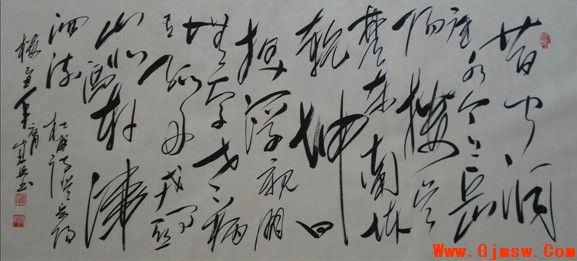 昔闻洞
庭水今上岳
阳楼吴
楚东南坼
乾坤日
夜浮親朋
無一字老病
有孤舟戎馬關
山北凭軒涕
泗流 杜甫詩登岳陽
樓
www.Gjmsw.Com